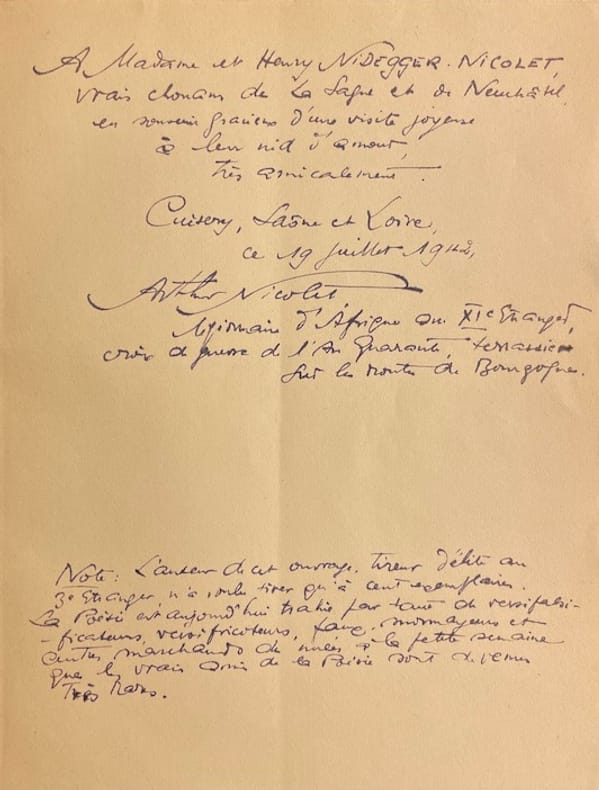 A Madame et Henry NIDEGGER-NICOLET,
vrais chouans de La Sagne et de Neuchâtel,
en souvenir gracieux d'une visite joyeuse
à leur nid d'amour,
très amicalement.
Cuisery, Saône et Loire,
ce 19 juillet 1942,
Arthur Nicolet,
légionnaire d'Afrique au XIe Etranger,
croix de guerre de l'An Quarante, terrassier
sur les routes de Bourgogne.
Note: L'auteur de cet ouvrage, tireur d'élite au
3e Etranger, n'a voulu tirer qu'à cent exemplaires.
La Poésie est aujourd'hui trahie par tant de versifalsi-
-ficateurs, versificoteurs, faux monnayeurs et
marchands de à la petite semaine
que les vrais amis de la Poésie sont devenus
Très Rares.